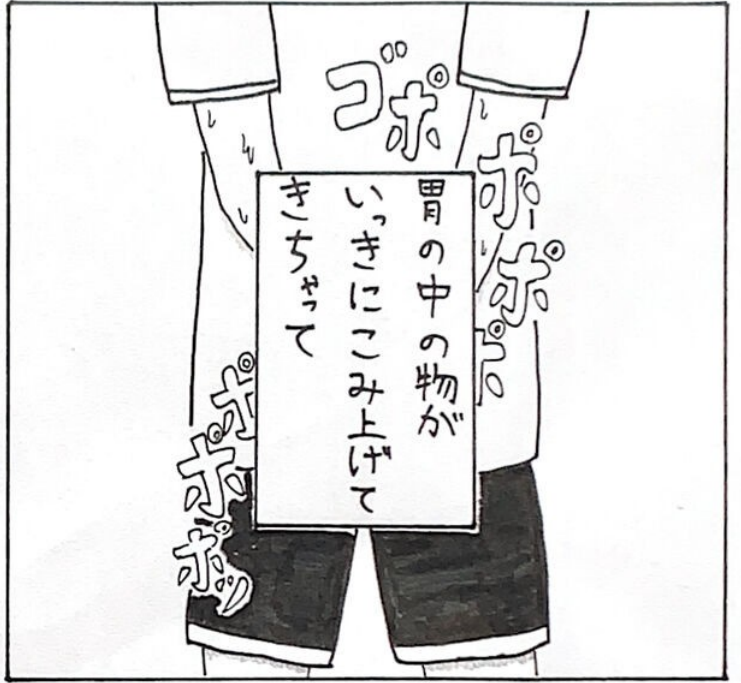 ゴポ
ポポポ
胃の中の物が
いっきにこみ上げて
きちゃって
ポポポッ